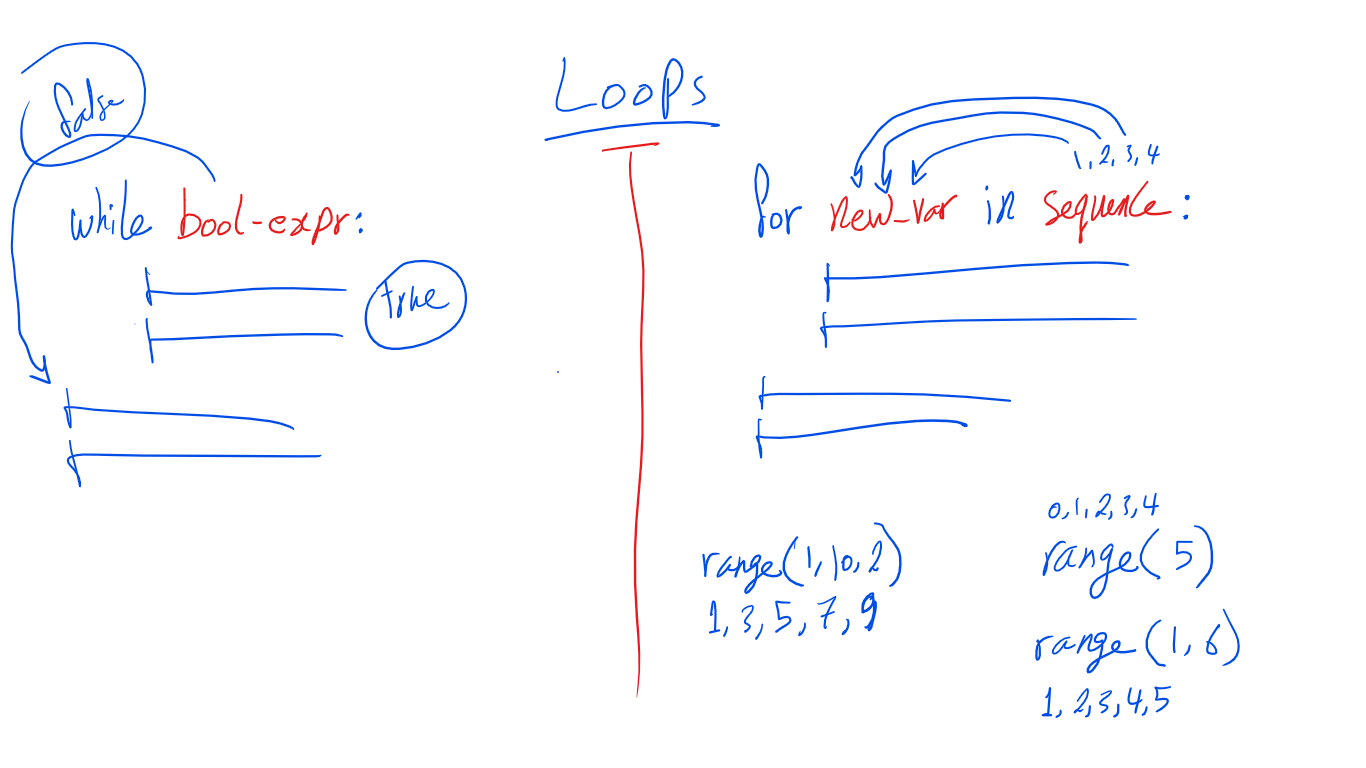 Loops
false
while bool-expr:
true
1, 2, 3, 4
for new_var in sequence:
range(1, 10, 2)
1, 3, 5, 7, 9
0, 1, 2, 3, 4
range( 5)
range (1, 6)
1, 2, 3, 4, 5